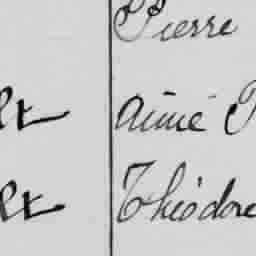 Pierre
lt Aimé
lt Théodore